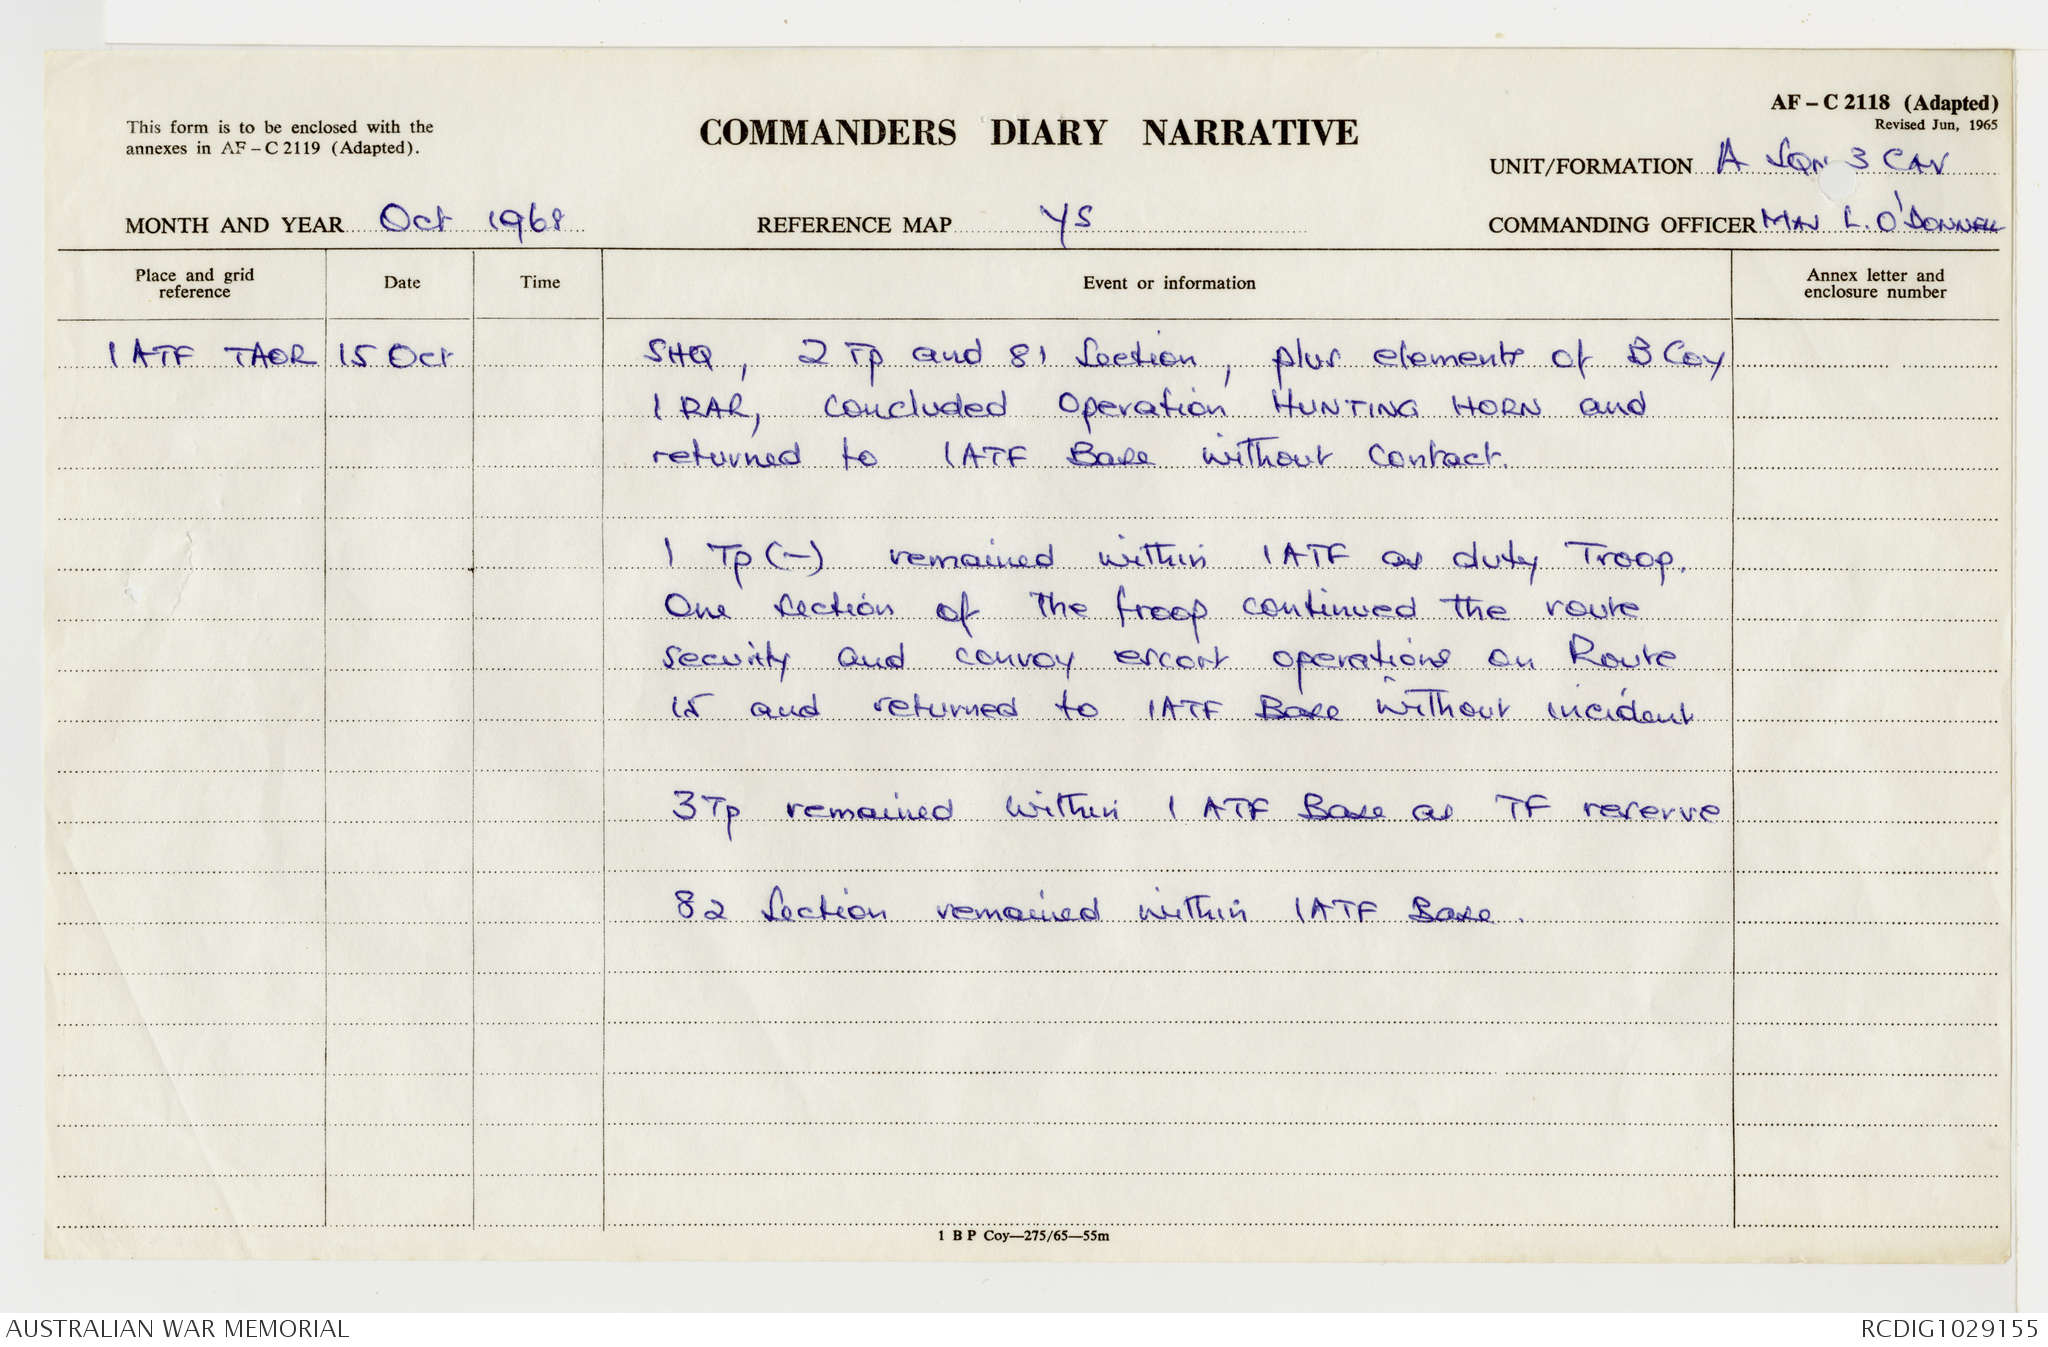 This form is to be enclosed with the
annexes in AF – C 2119 (Adapted).
COMMANDERS DIARY NARRATIVE
AF – C 2118 (Adapted)
Revised Jun, 1965
UNIT/FORMATION A SQN 3 CAV
MONTH AND YEAR Oct 1968
REFERENCE MAP YS
COMMANDING OFFICER MAJ L. O'DONNELL
Place and grid
reference
Date
Time
Event or information
Annex letter and
enclosure number
1 ATF TAOR 15 Oct SHQ, 2 Tp and 81 Section, plus elements of B Coy
1 RAR, concluded Operation HUNTING HORN and
returned to 1 ATF Base without contact.
1 Tp (–) remained within 1 ATF as duty Troop.
One section of the troop continued the route
security and convoy escort operations on Route
15 and returned to 1 ATF Base without incident
3 Tp remained within 1 ATF Base as TF reserve
82 Section remained within 1 ATF Base.
1 B P Coy—275/65—55m
AUSTRALIAN WAR MEMORIAL
RCDIG1029155